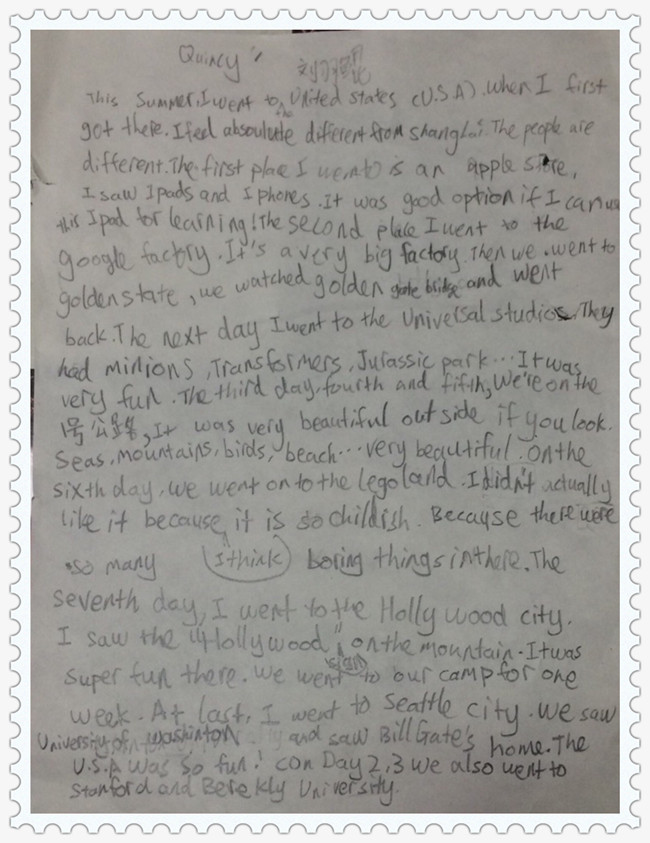 Quincy 刘
This Summer, I went to the United States (U.S.A). When I first
got there. I feel absoulute different from Shanghai. The people are
different. The first place I went to is an apple store,
I saw Ipads and Iphones. It was good option if I can use
this Ipad for learning! The second place I went to the
google factory. It's a very big factory. Then we went to
golden state, we watched golden gate bridge and went
back. The next day I went to the Universal studios. They
had minions, Transformers, Jurassic park... It was
very fun. The third day, fourth and fifth, We're on the
1号公路, It was very beautiful outside if you look.
Seas, mountains, birds, beach... very beautiful. On the
sixth day, we went on to the legoland. I didn't actually
like it because it is so childish. Because there were
so many (I think) boring things in there. The
seventh day, I went to the Hollywood city.
I saw the "Hollywood" sign on the mountain. It was
super fun there. We went to our camp for one
week. At last, I went to Seattle city. We saw
University of Washinton and saw Bill Gate's home. The
U.S.A was so fun! (on Day 2,3 we also went to
Stanford and Berekly University.